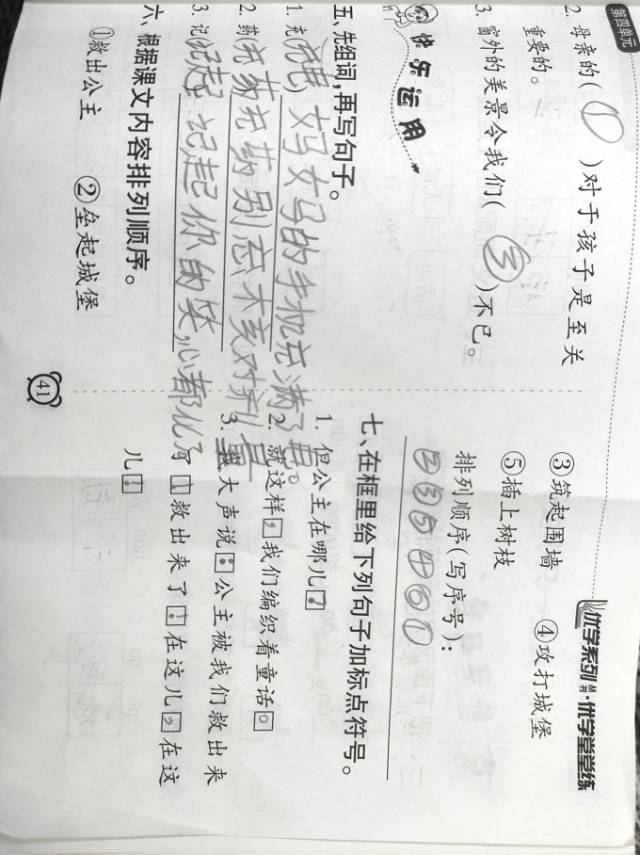 第四单元
2. 母亲的( ① )对于孩子是至关
重要的。
3. 窗外的美景令我们( ③ )不已。
快乐运用
五、先组词,再写句子。
1. 充(充电) 妈妈的手机充满了电。
2. 药
3. 记(记起) 记起你的笑,心都化了
六、根据课文内容排列顺序。
①救出公主 ②垒起城堡
41
优学系列 丛书·优学堂堂练
③筑起围墙 ④攻打城堡
⑤插上树枝
排列顺序(写序号):
②③⑤④①
七、在框里给下列句子加标点符号。
1. 但公主在哪儿?
2. 就这样,我们编织着童话。
3. 大声说:公主被我们救出来
救出来了!在这儿,在这
儿!